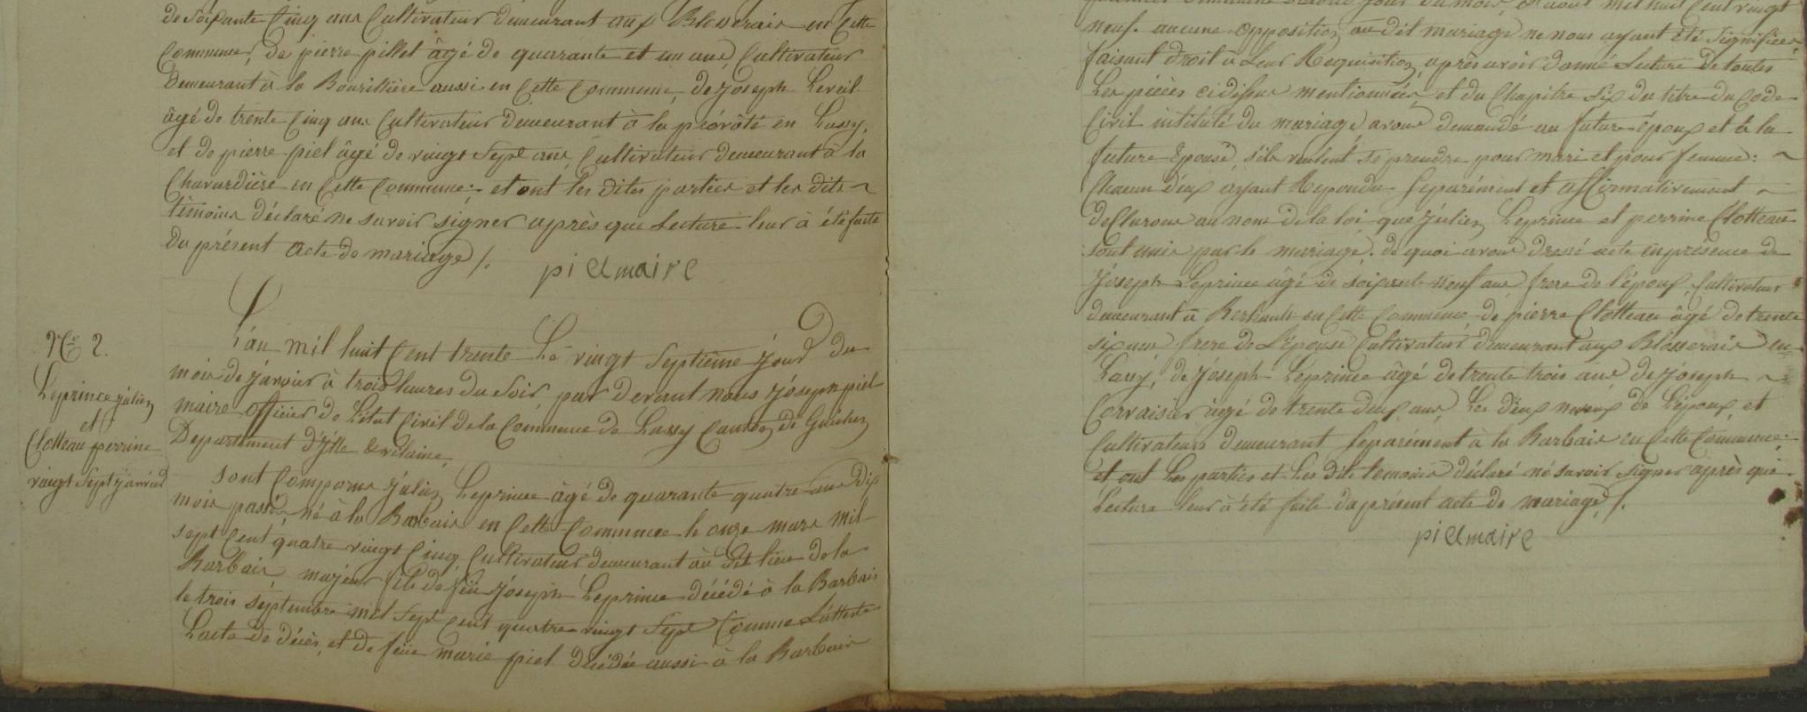 de soixante Cinq ans Cultivateur demeurant aux Blosserais en Cette
Commune, de pierre pillet âgé de quarante et un ans Cultivateur
demeurant à la Bourillière aussi en Cette Commune, de Joseph Leveil
âgé de trente Cinq ans Cultivateur demeurant à la prévôté en Lassy,
et de pierre piel âgé de vingt Sept ans Cultivateur demeurant à la
Chavardière en Cette Commune: et ont les dites parties et les dits ~
témoins déclaré ne savoir signer après que Lecture leur à été faite
du présent acte de mariage /.
piel maire
No 2.
Leprince julien
et
Clotteau perrine
vingt Sept janvier
L'an mil huit Cent trente Le vingt Septième jour du
mois de Janvier à trois heures du Soir, par Devant nous Jóseph piel
maire officier de L'état Civil de la Commune de Lassy Canton de Guichen
Departement d'jlle & vilaine,
sont Comparus Julien Leprince âgé de quarante quatre ans Dix
mois passé, né à la Barbais en Cette Commune le onze mars mil
sept Cent quatre vingt Cinq, Cultivateur demeurant au Dit lieu de la
Barbais, majeur fils de feu Jóseph Leprince décédé à la Barbais
le trois Septembre mil Sept Cent quatre vingt Sept Comme L'atteste
L'acte de décès, et de feue marie piel Décédée aussi à la Barbais
neuf. aucune opposition audit mariage ne nous ayant été Signifiée,
faisant droit à Leur Réquisition, après avoir donné Lecture de toutes
Les pièces cidessus mentionnées et du Chapitre Six du titre du Code
Civil intitulé du mariage, avons demandé au futur époux et à la
future Epouse s'ils veulent se prendre pour mari et pour femme: ~
Chacun d'eux ayant Repondu Separément et affirmativement ~
declarons au nom de la loi que Julien Leprince et perrine Clotteau
sont unis par le mariage. de quoi avons dressé acte en présence de
Jóseph Leprince âgé de soixante neuf ans frere de l'époux Cultivateur
demeurant à en Cette Commune de pierre Clotteau âgé de trente
six ans frere de L'Epouse Cultivateur demeurant aux Blosserais en
Lassy, de Joseph Leprince âgé de trente trois ans de Joseph ~
Corvaisier âgé de trente deux ans Les deux neveux de L'époux, et
Cultivateurs demeurant Separement à la Barbais en Cette Commune:
et ont Les parties et Les dits temoins déclaré né savoir Signer après que
Lecture leur à été faite du présent acte de mariage /.
piel maire